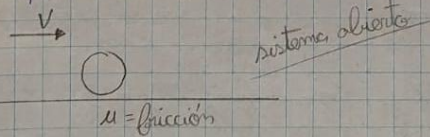 V
sistema abierto
μ = fricción